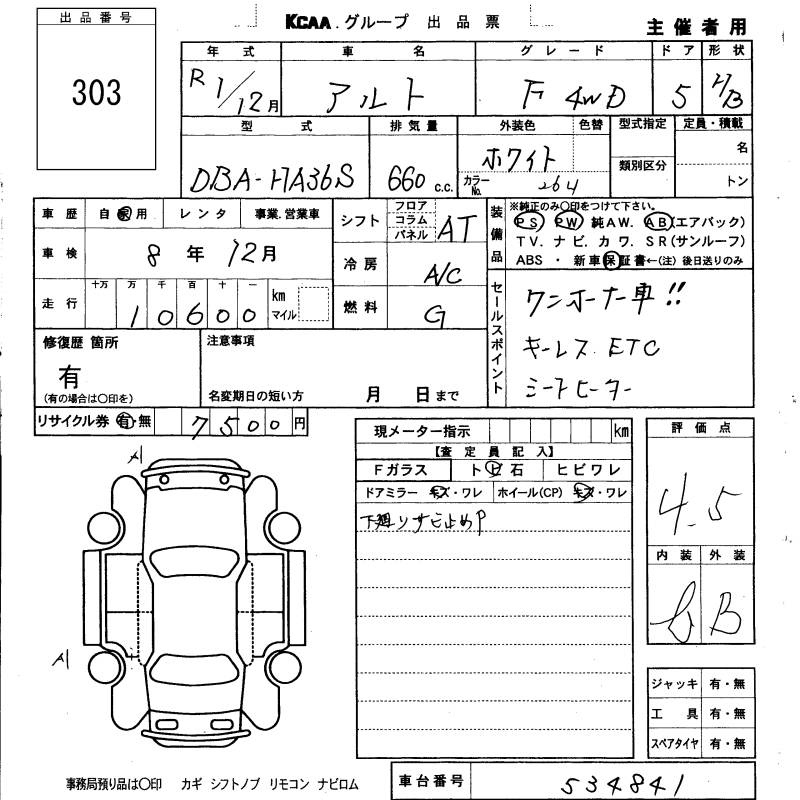 出品番号
303
KCAA グループ 出品票
主催者用
年式 車名 グレード ドア 形状
R1/12月 アルト F 4WD 5 H/B
型式 排気量 外装色 色替 型式指定 定員・積載
DBA-HA36S 660 c.c. ホワイト 名
カラーNo. 264 類別区分 トン
車歴 自家用 レンタ 事業.営業車
車検 8年12月
走行 十万 万 千 百 十 一 km マイル
10600
シフト フロア コラム パネル AT
冷房 A/C
燃料 G
装備品
※純正のみ〇印をつけて下さい。
PS PW 純AW. AB(エアバック)
TV. ナビ. カワ. SR(サンルーフ)
ABS ・ 新車保証書←(注) 後日送りのみ
セールスポイント
ワンオーナー車!!
キーレス ETC
シートヒーター
修復歴 箇所
有
(有の場合は〇印を)
注意事項
名変期日の短い方 月 日まで
リサイクル券 有・無 7500円
現メーター指示 km
【査定員記入】
Fガラス トビ石 ヒビワレ
ドアミラー キズ・ワレ ホイール(CP) キズ・ワレ
下廻りサビ止めP
評価点
4.5
内装 外装
B
A1
A1
ジャッキ 有・無
工具 有・無
スペアタイヤ 有・無
事務局預り品は〇印 カギ シフトノブ リモコン ナビロム
車台番号 534841